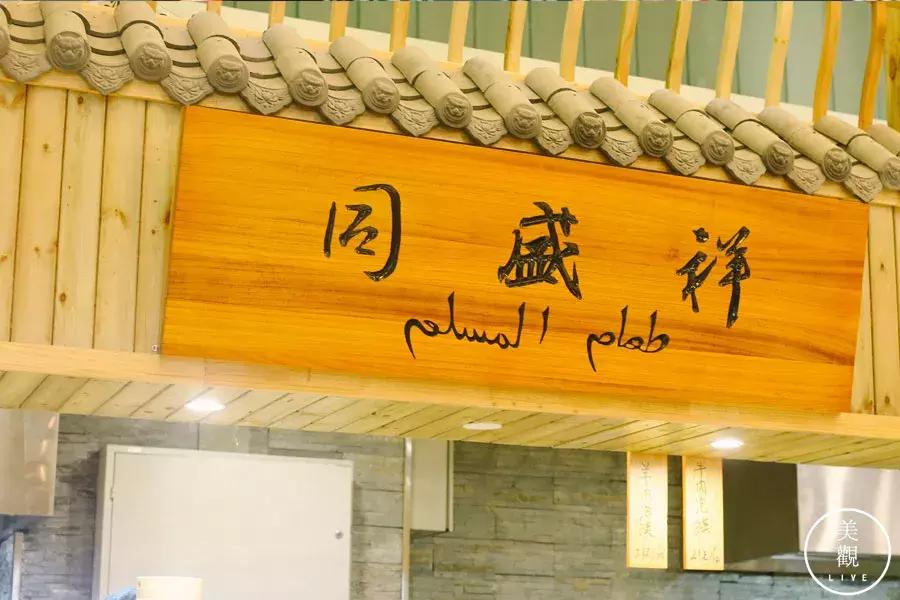 同盛祥
طعام المسلم
羊肉泡馍
牛肉泡馍
美
觀
LIVE